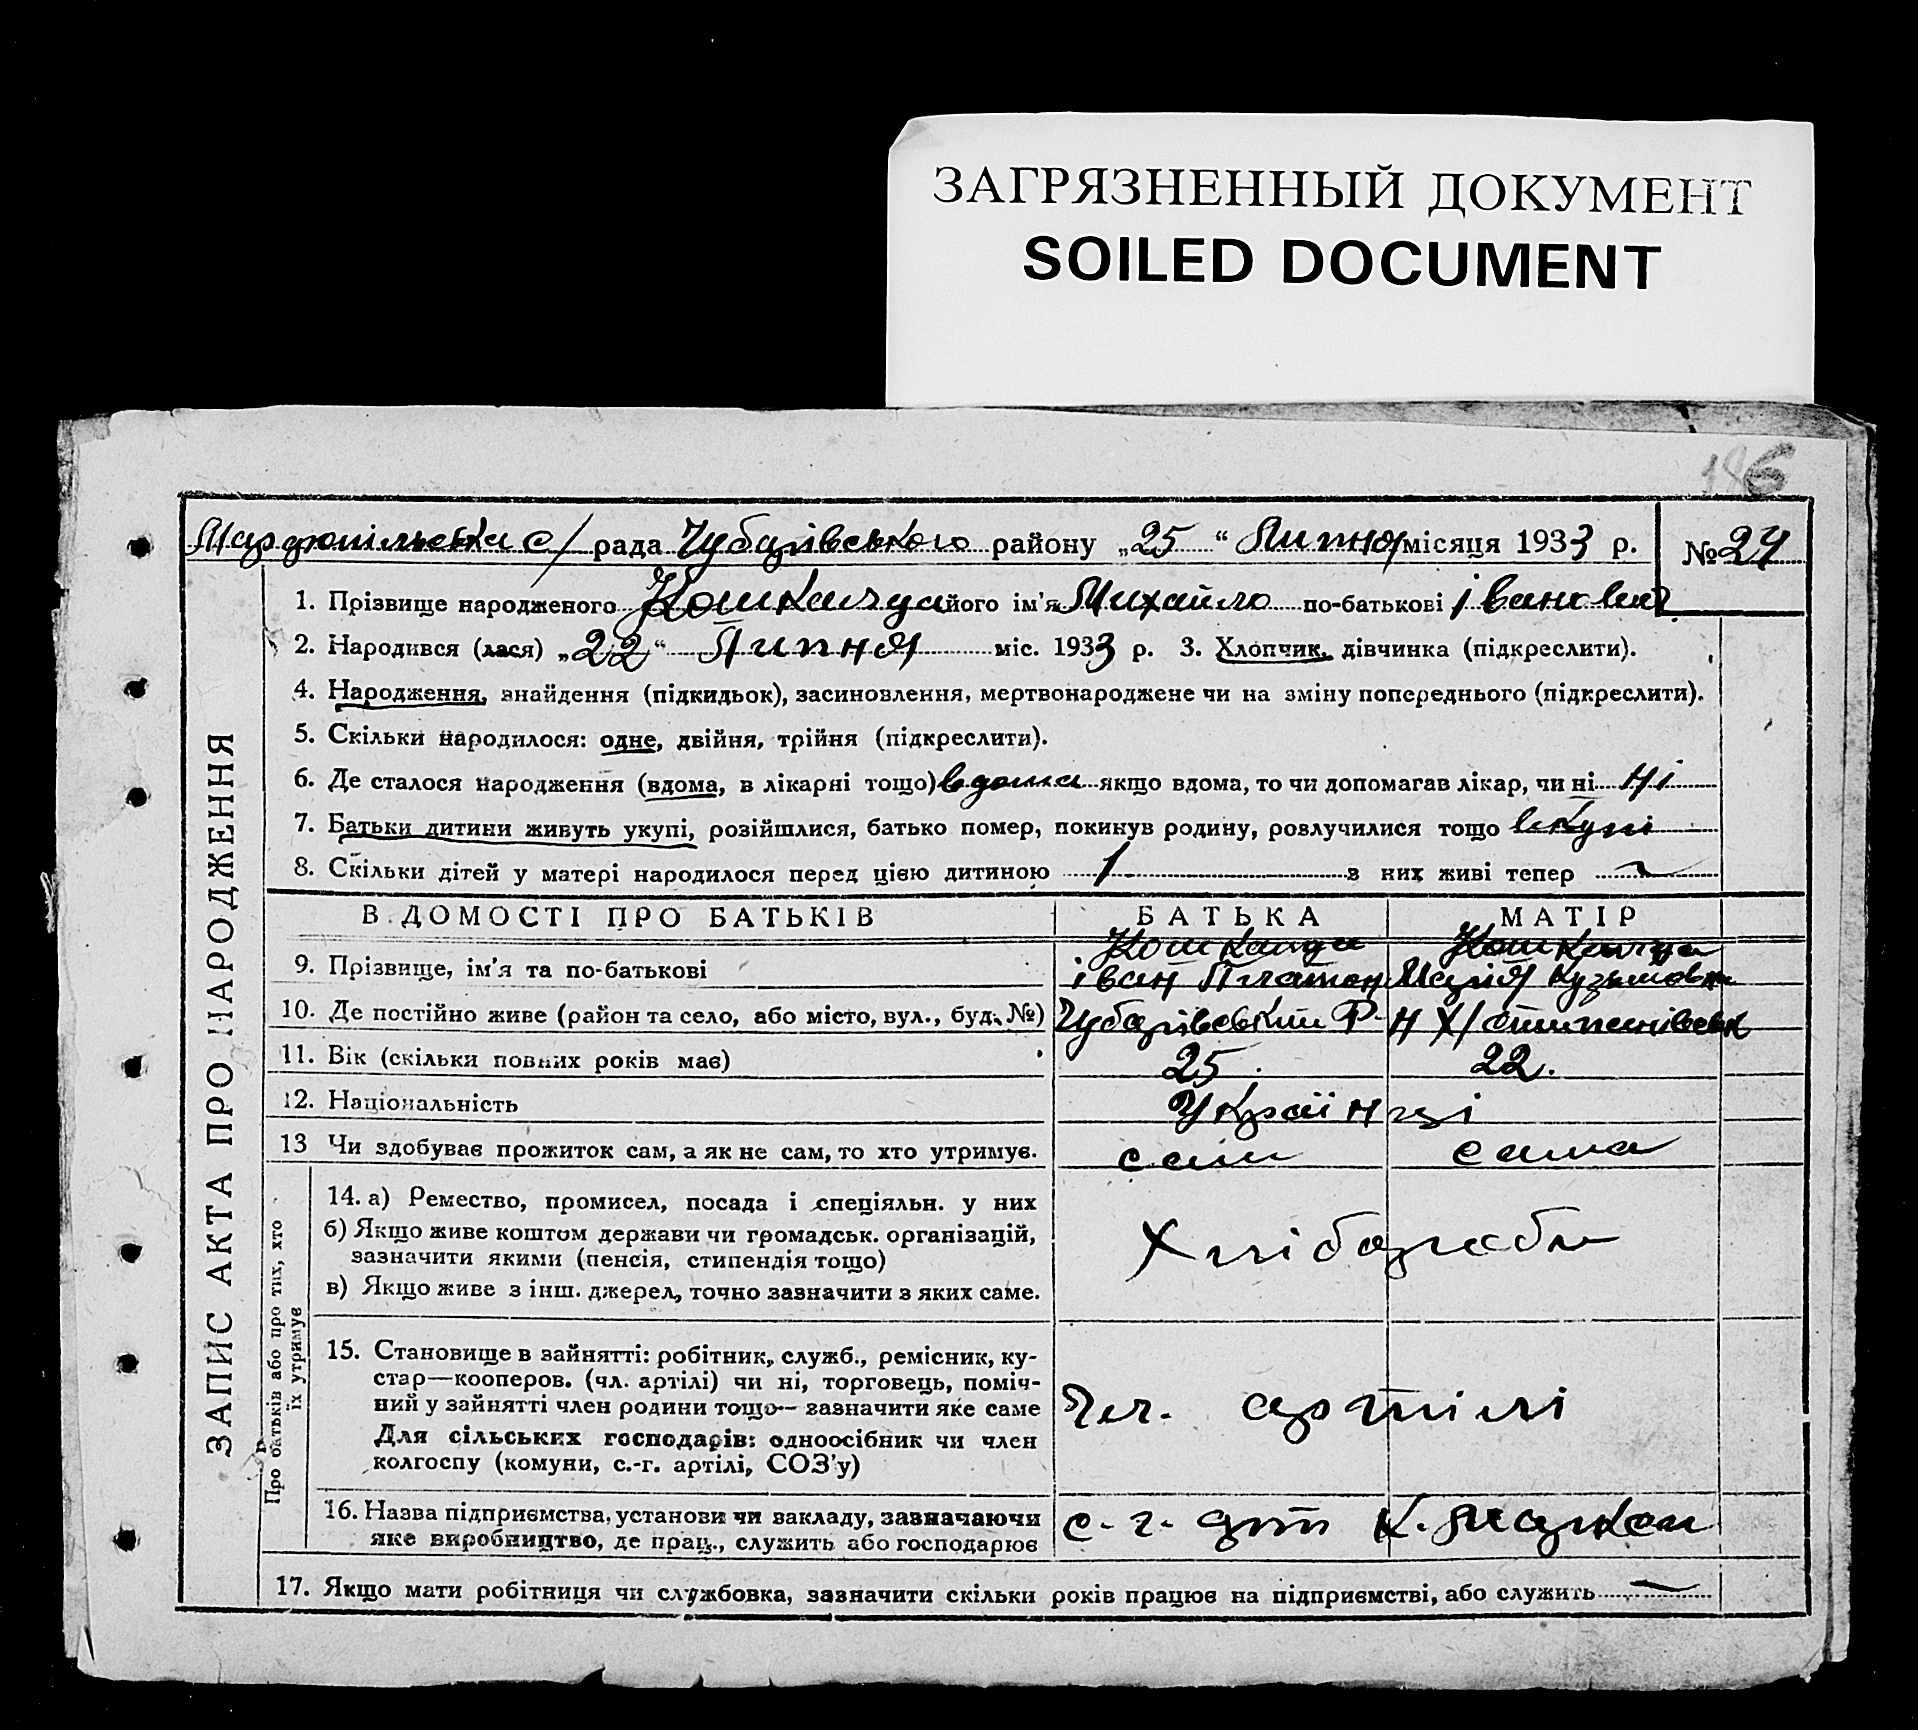 ЗАГРЯЗНЕННЫЙ ДОКУМЕНТ
SOILED DOCUMENT
186
Марфопільська с/ рада Чубарівського району „25“ Липня місяця 1933 р. №24
ЗАПИС АКТА ПРО НАРОДЖЕННЯ
1. Прізвище народженого Кошкалда його ім'я Михайло по-батькові іванович
2. Народився (лася) „22“ Липня міс. 1933 р. 3. Хлопчик, дівчинка (підкреслити).
4. Народження, знайдення (підкидьок), засиновлення, мертвонароджене чи на зміну попереднього (підкреслити).
5. Скільки народилося: одне, двійня, трійня (підкреслити).
6. Де сталося народження (вдома, в лікарні тощо) вдома якщо вдома, то чи допомагав лікар, чи ні ні
7. Батьки дитини живуть укупі, розійшлися, батько помер, покинув родину, розлучилися тощо вкупі
8. Скільки дітей у матері народилося перед цією дитиною 1 з них живі тепер
В ДОМОСТІ ПРО БАТЬКІВ БАТЬКА МАТІР
Кошкалда Кошкалда
9. Прізвище, ім'я та по-батькові іван Платон Марія Кузьмовна
10. Де постійно живе (район та село, або місто, вул., буд. №) Чубарівський Р-н х/
11. Вік (скільки повних років має) 25 22.
12. Національність Українці
13 Чи здобуває прожиток сам, а як не сам, то хто утримує. сам сама
Про батьків або про тих, хто
їх утримує
14. а) Ремество, промисел, посада і спеціяльн. у них
б) Якщо живе коштом держави чи громадськ. організацій,
зазначити якими (пенсія, стипендія тощо)
в) Якщо живе з інш. джерел, точно зазначити з яких саме.
Хлібороби
15. Становище в зайнятті: робітник, служб., ремісник, ку-
стар—кооперов. (чл. артілі) чи ні, торговець, поміч-
ний у зайнятті член родини тощо — зазначити яке саме
Для сільських господарів: одноосібник чи член
колгоспу (комуни, с.-г. артілі, СОЗ'у)
Чл. артілі
16. Назва підприємства, установи чи закладу, зазначаючи
яке виробництво, де прац., служить або господарює
с. г. арт К.
17. Якщо мати робітниця чи службовка, зазначити скільки років працює на підприємстві, або служить —